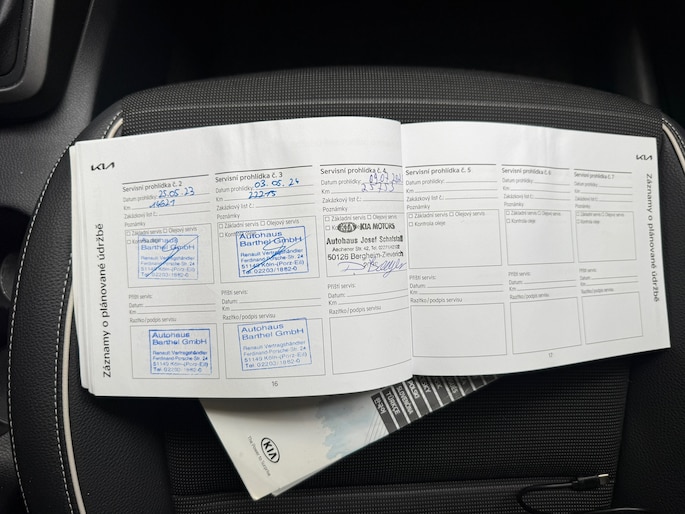 KIA
Záznamy o plánované údržbě
Servisní prohlídka č. 2
Datum prohlídky: 25.05.23
Km
Zakázkový list č.:
Poznámky
☐ Základní servis ☐ Olejový servis
Autohaus
Barthel GmbH
Renault Vertragshändler
Ferdinand Porsche Str. 24
51149 Köln-(Porz-Eil)
Příští servis:
Datum:
Km
Razítko/podpis servisu
Autohaus
Barthel GmbH
Renault Vertragshändler
Ferdinand Porsche Str. 24
51149 Köln-(Porz-Eil)
Servisní prohlídka č. 3
Datum prohlídky: 03.05.24
Km 22215
Zakázkový list č.:
Poznámky
☐ Základní servis ☐ Olejový servis
Autohaus
Barthel GmbH
Renault Vertragshändler
Ferdinand Porsche Str. 24
51149 Köln-(Porz-Eil)
Tel. 02203/1882-0
Příští servis:
Datum:
Km
Razítko/podpis servisu
Autohaus
Barthel GmbH
Renault Vertragshändler
Ferdinand Porsche Str. 24
51149 Köln-(Porz-Eil)
Servisní prohlídka č. 4
Datum prohlídky:
Km
Zakázkový list č.:
Poznámky
☐ Základní servis ☐ Olejový servis
KIA KIA MOTORS
Autohaus Josef Schafstall
50126 Bergheim-Zieverich
Příští servis:
Datum:
Km
Razítko/podpis servisu
16
Servisní prohlídka č. 5
Datum prohlídky:
Km
Zakázkový list č.:
Poznámky
☐ Základní servis ☐ Olejový servis
☐ Kontrola oleje
Příští servis:
Datum:
Km
Razítko/podpis servisu
Servisní prohlídka č. 6
Datum prohlídky:
Km
Zakázkový list č.:
Poznámky
☐ Základní servis ☐ Olejový servis
☐ Kontrola oleje
Příští servis:
Datum:
Km
Razítko/podpis servisu
Servisní prohlídka č. 7
Datum prohlídky:
Km
Zakázkový list č.:
Poznámky
☐ Základní servis ☐ Olejový servis
☐ Kontrola oleje
Příští servis:
Datum:
Km
Razítko/podpis servisu
17
KIA
Záznamy o plánované údržbě
KIA
The Power to Surprise
POLSKI
SLOVENSKY
TÜRKÇE